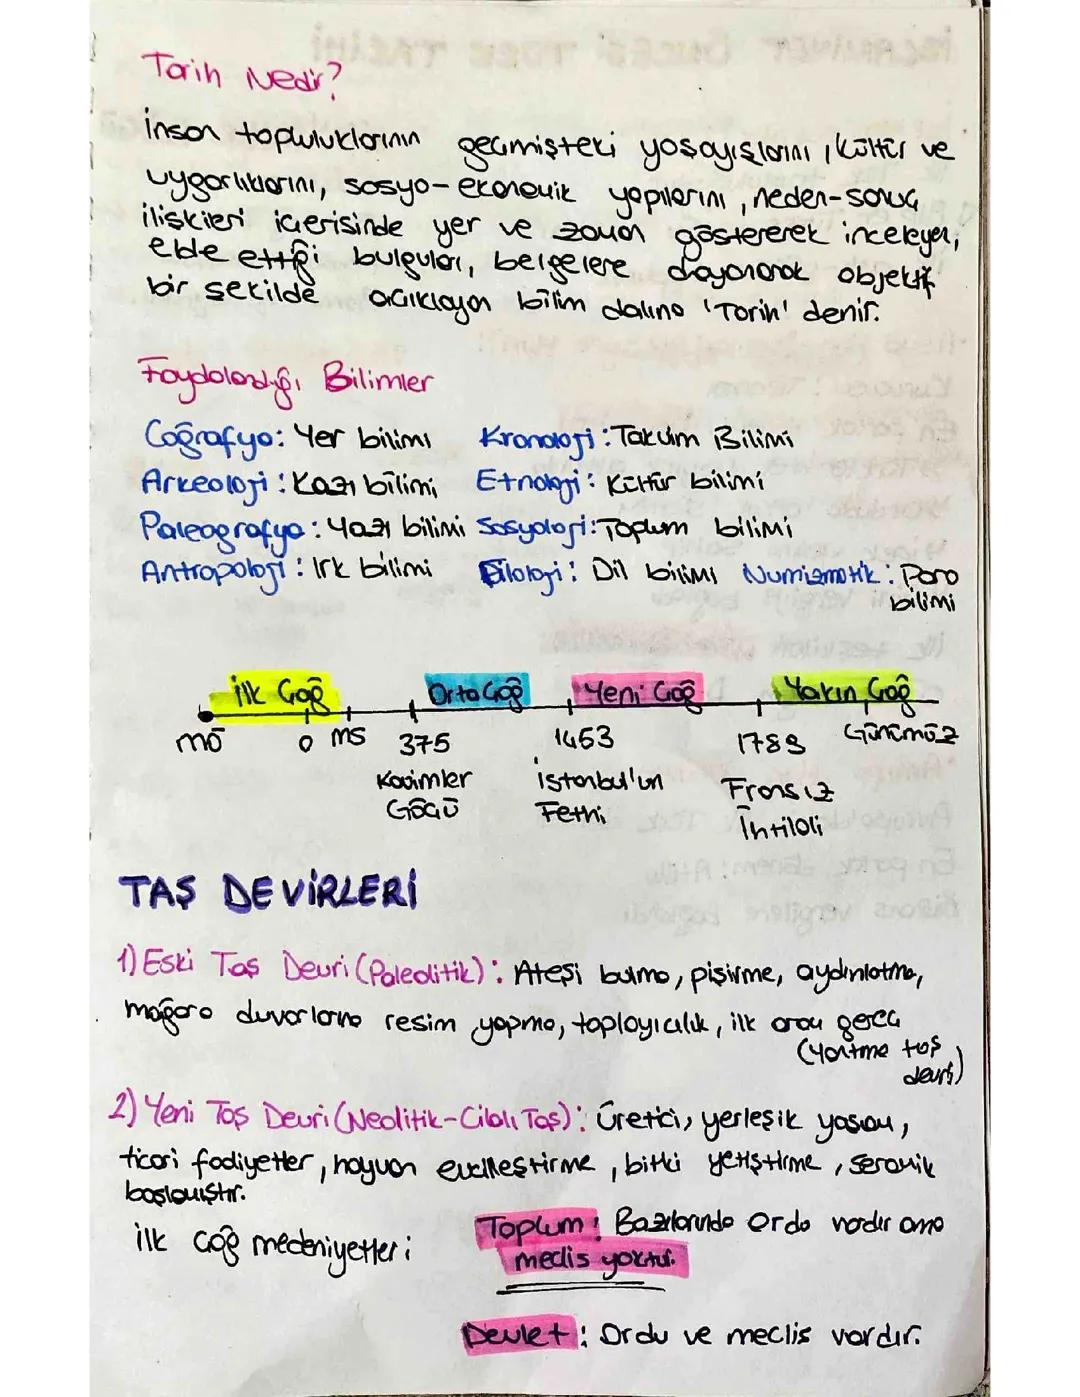 Tarih Nedir?
İnsan topluluklarının geçmişteki yaşayışlarını, kültür ve
uygarlıklarını, sosyo-ekonomik yapılarını, neden-sonuç
ilişkileri içerisinde yer ve zaman göstererek inceleyen,
elde ettiği bulguları, belgelere dayanarak objektif
bir şekilde açıklayan bilim dalına 'Tarih' denir.
Faydalandığı Bilimler
Coğrafya: Yer bilimi Kronoloji: Takvim Bilimi
Arkeoloji: Kazı bilimi Etnoloji: Kültür bilimi
Paleografya: Yazı bilimi Sosyoloji: Toplum bilimi
Antropoloji: Irk bilimi Filoloji: Dil bilimi Nümizmatik: Para
bilimi
İlk Çağ Orta Çağ Yeni Çağ Yakın Çağ
MÖ 0 MS 375 1453 1789 Günümüz
Kavimler İstanbul'un Fransız
Göçü Fethi İhtilali
TAŞ DEVİRLERİ
1) Eski Taş Devri (Paleolitik): Ateşi bulma, pişirme, aydınlatma,
mağara duvarlarına resim yapma, toplayıcılık, ilk araç gereç
(Yontma taş
devri)
2) Yeni Taş Devri (Neolitik-Cilalı Taş): Üretici, yerleşik yaşam,
ticari faaliyetler, hayvan evcilleştirme, bitki yetiştirme, seramik
başlamıştır.
İlk çağ medeniyetleri Toplum: Bazılarında Ordu vardır ama
meclis yoktur.
Devlet: Ordu ve meclis vardır.